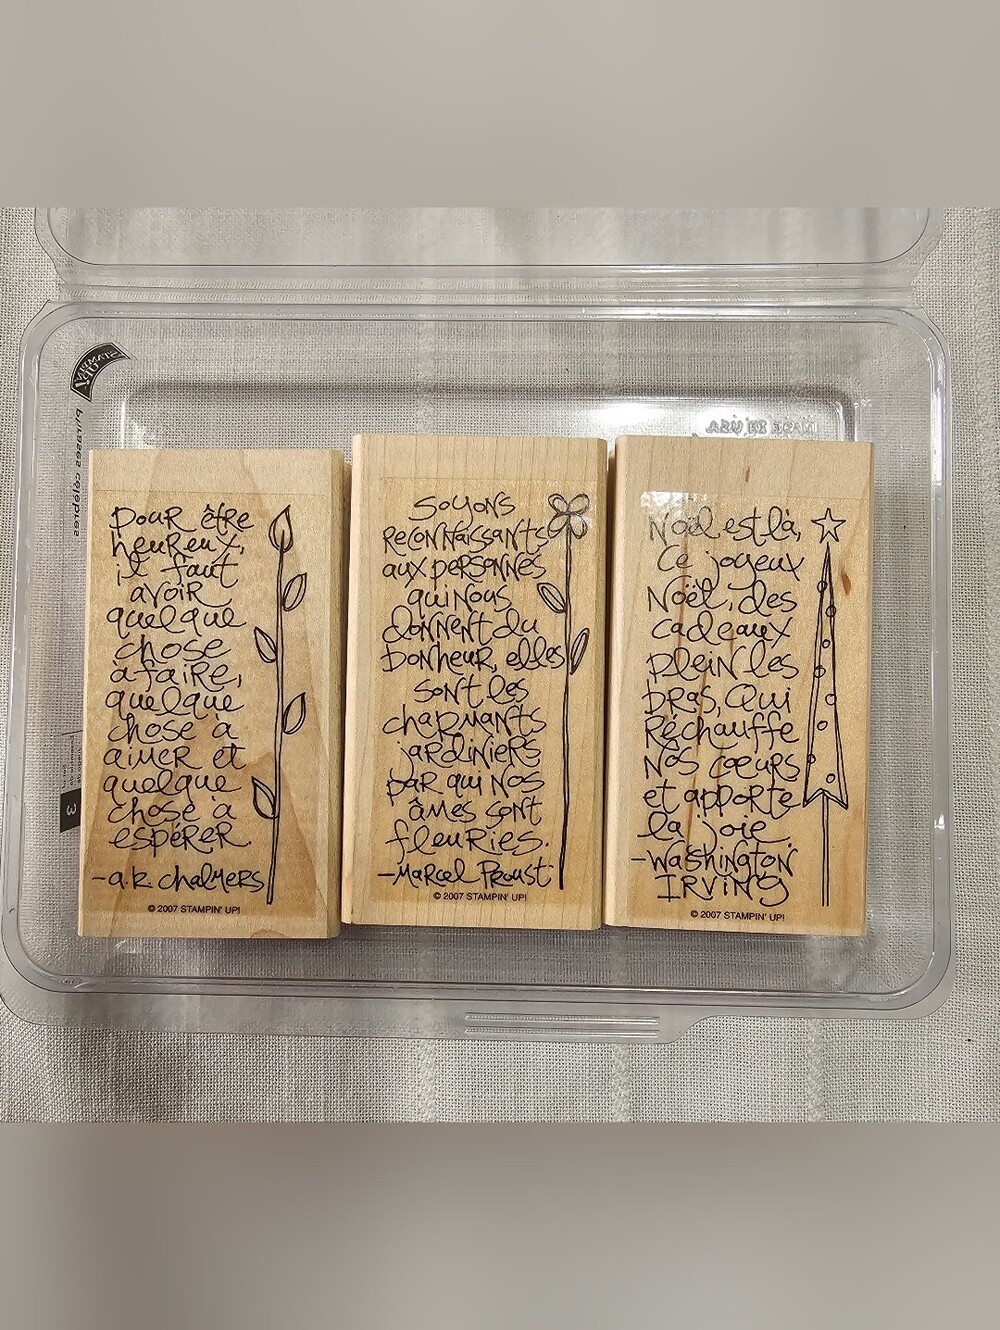 STAMPIN' UP!
phrases célèbres
MADE IN USA
3
Pour être
heureux,
il faut
avoir
quelque
chose
à faire,
quelque
chose à
aimer et
quelque
chose à
espérer.
-a.k. chalmers
© 2007 STAMPIN' UP!
Soyons
reconnaissants
aux personnes
qui nous
donnent du
bonheur, elles
sont les
charmants
jardiniers
par qui nos
âmes sont
fleuries.
-Marcel Proust
© 2007 STAMPIN' UP!
Noël est là,
Ce joyeux
Noël, des
cadeaux
plein les
bras, Qui
Réchauffe
Nos cœurs
et apporte
la joie
-Washington
Irving
© 2007 STAMPIN' UP!